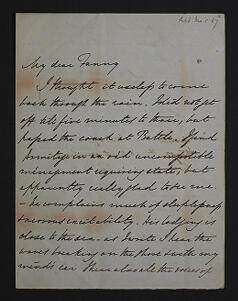 My dear Fanny
I thought it useless to come
back through the rain. I did not get
off till five minutes to three, but
passed the coach at Battle. I find
in an old uncomfortable
but
apparently really glad to see me.
- he complains much of sleeplessness
& nervous excitability. His lodging is
close to the sea - as I write I hear the
waves breaking on the shore & with my
mind's ear I hear also all the voices of